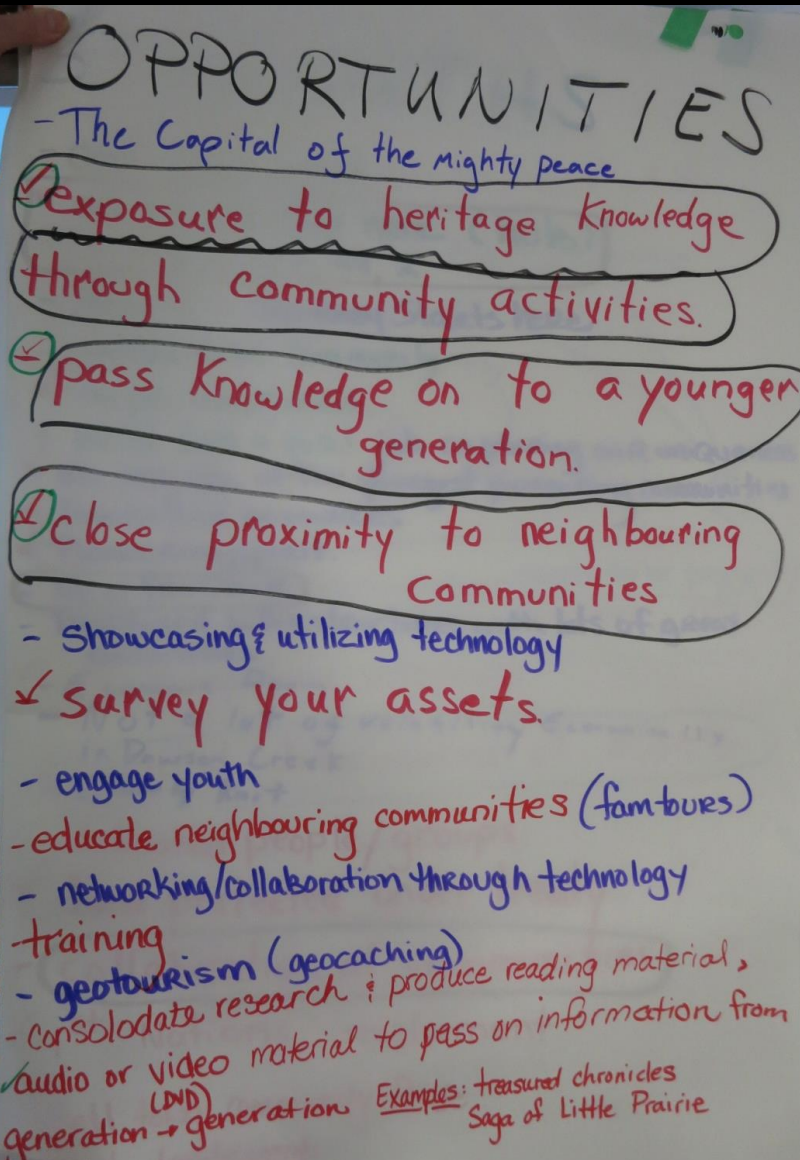 OPPORTUNITIES
- The Capital of the mighty peace
✓ exposure to heritage Knowledge
through community activities.
✓ pass Knowledge on to a younger
generation.
✓ close proximity to neighbouring
Communities
- showcasing & utilizing technology
✓ survey your assets.
- engage youth
- educate neighbouring communities (fam tours)
- networking/collaboration through technology
- training
- geotourism (geocaching)
- consolodate research & produce reading material,
✓ audio or video material to pass on information from
(DVD)
generation → generation Examples: treasured chronicles
Saga of Little Prairie